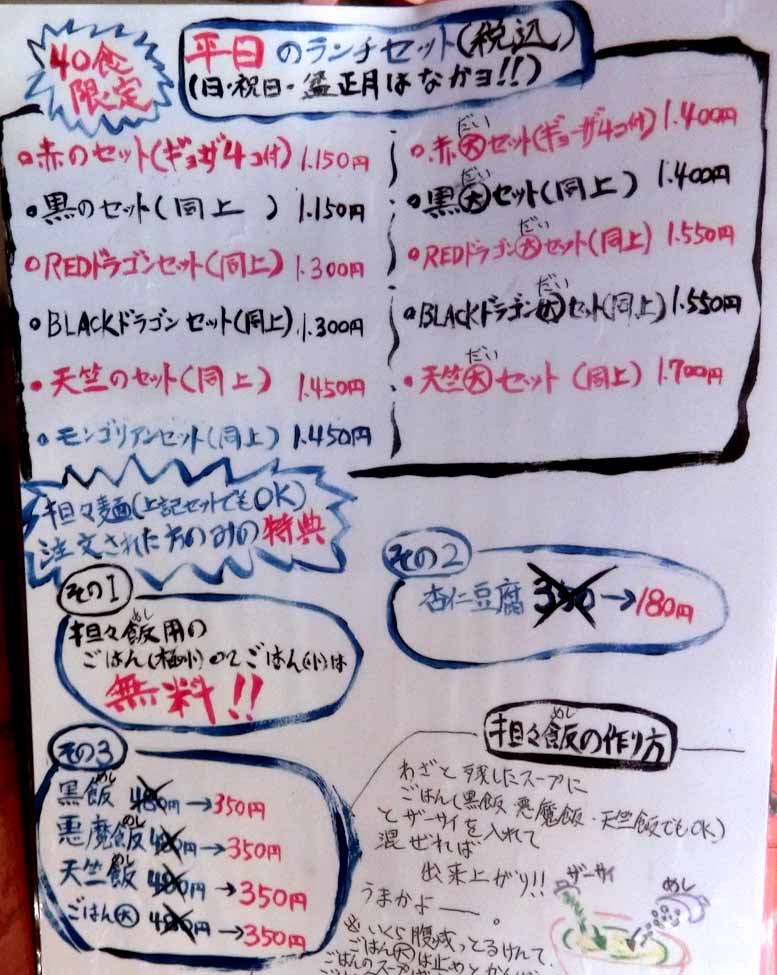 40食
限定
平日のランチセット(税込)
(日・祝日・盆正月はなかヨ!!)
赤のセット(ギョーザ4コ付) 1.150円
黒のセット(同上) 1.150円
REDドラゴンセット(同上) 1.300円
BLACKドラゴンセット(同上) 1.300円
天竺のセット(同上) 1.450円
モンゴリアンセット(同上) 1.450円
だい
赤大セット(ギョーザ4コ付) 1.400円
だい
黒大セット(同上) 1.400円
だい
REDドラゴン大セット(同上) 1.550円
だい
BLACKドラゴン大セット(同上) 1.550円
だい
天竺大セット(同上) 1.700円
担々麺(上記セットでもOK)
注文された方のみの特典
その1
めし
担々飯用の
ごはん(極小) のごはん(小)は
無料!!
その2
杏仁豆腐 350→180円
その3
めし
黒飯 480円→350円
めし
悪魔飯 480円→350円
めし
天竺飯 480円→350円
ごはん大 480円→350円
めし
担々飯の作り方
わざと残したスープに
ごはん(黒飯・悪魔飯・天竺飯でもOK)
とザーサイを入れて
混ぜれば
出来上がり!!
うまかよー。
ザーサイ
めし
※いくら腹減っとるけんて、
ごはん大は止めとかんね